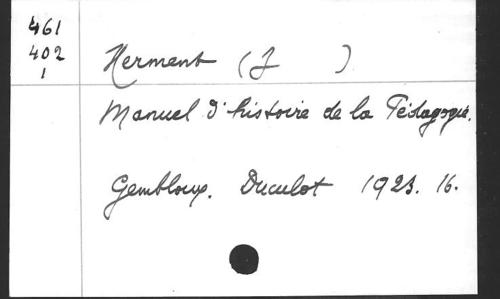 461
402
1
Herment (J )
Manuel d'histoire de la Pédagogie.
Gembloux. Duculot 1923. 16.